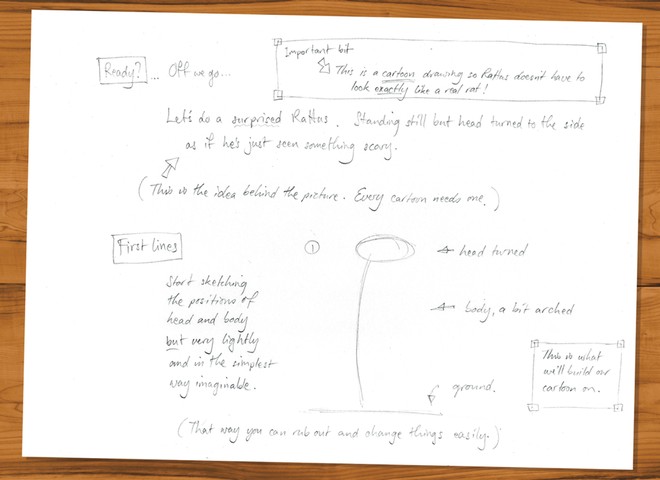 Important bit
This is a cartoon drawing so Rattus doesn't have to
look exactly like a real rat!
Ready? ... Off we go...
Let's do a surprised Rattus. Standing still but head turned to the side
as if he's just seen something scary.
(This is the idea behind the picture. Every cartoon needs one.)
First lines
1
head turned
Start sketching
the positions of
head and body
but very lightly
and in the simplest
way imaginable.
body, a bit arched
This is what
we'll build our
cartoon on.
ground.
(That way you can rub out and change things easily.)